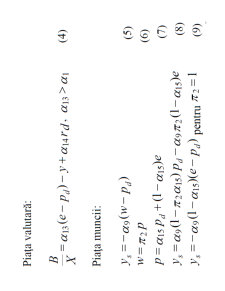 Piaţa valutară:
B/X = α₁₃(e − p_d)₁ − y + α₁₄r_d, α₁₃ > α₁ (4)
Piaţa muncii:
y_s = −α₉(w − p_d) (5)
w = π₂p (6)
p = α₁₅p_d + (1 − α₁₅)e (7)
y_s = α₉(1 − π₂α₁₅)p_d − α₉π₂(1 − α₁₅)e (8)
y_s = −α₉(1 − α₁₅)(e − p_d) pentru π₂ = 1 (9)